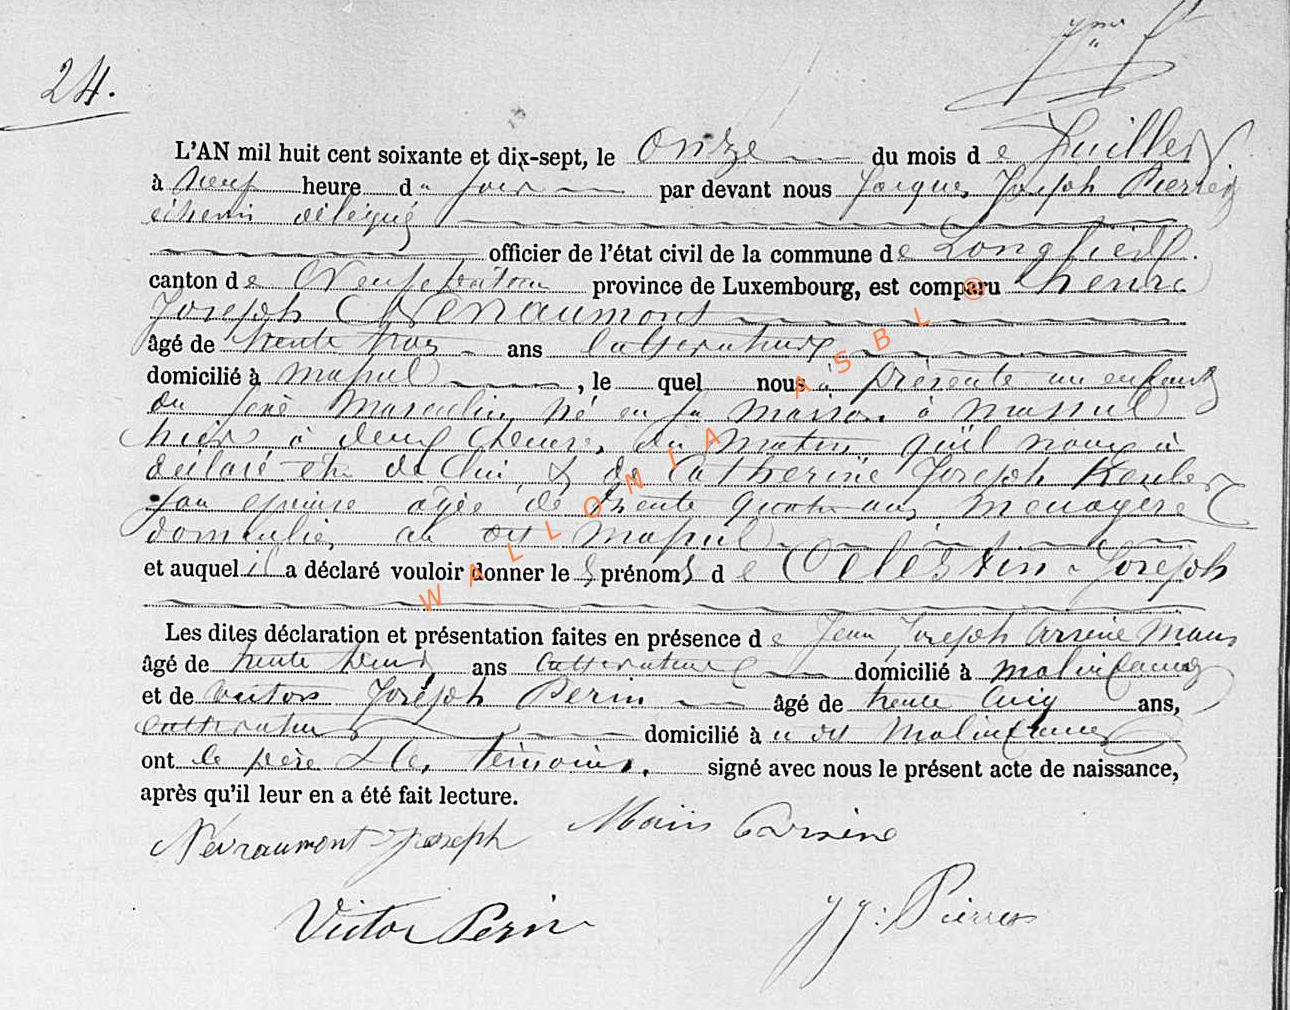 24.
L'AN mil huit cent soixante et dix-sept, le onze du mois de Juillet
à neuf heure du soir par devant nous Jacques Joseph Pierret
échevin délégué
officier de l'état civil de la commune de Longlier.
canton de Neufchâteau province de Luxembourg, est comparu henri
Joseph Nevraumont
âgé de trente trois ans cultivateur
domicilié à massul, le quel nous a présenté un enfant
du sexe masculin né en sa maison à massul
hier à deux heures du matin qu'il nous a
déclaré etre de lui & de Catherine Joseph
son épouse agée de trente quatre ans menagere
domiciliée au dit massul
et auquel il a déclaré vouloir donner les prénoms de Celestin Joseph
Les dites déclaration et présentation faites en présence de Jean Joseph arsene Maus
âgé de trente deux ans cultivateur domicilié à molinfaing
et de victor Joseph Perin âgé de trente cinq ans,
cultivateur domicilié à u dit Molinfaing
ont le père & les témoins, signé avec nous le présent acte de naissance,
après qu'il leur en a été fait lecture.
Nevraumont Joseph
Arsène
Victor Perin
JJ: Pierret
WALLONIA ASBL ®